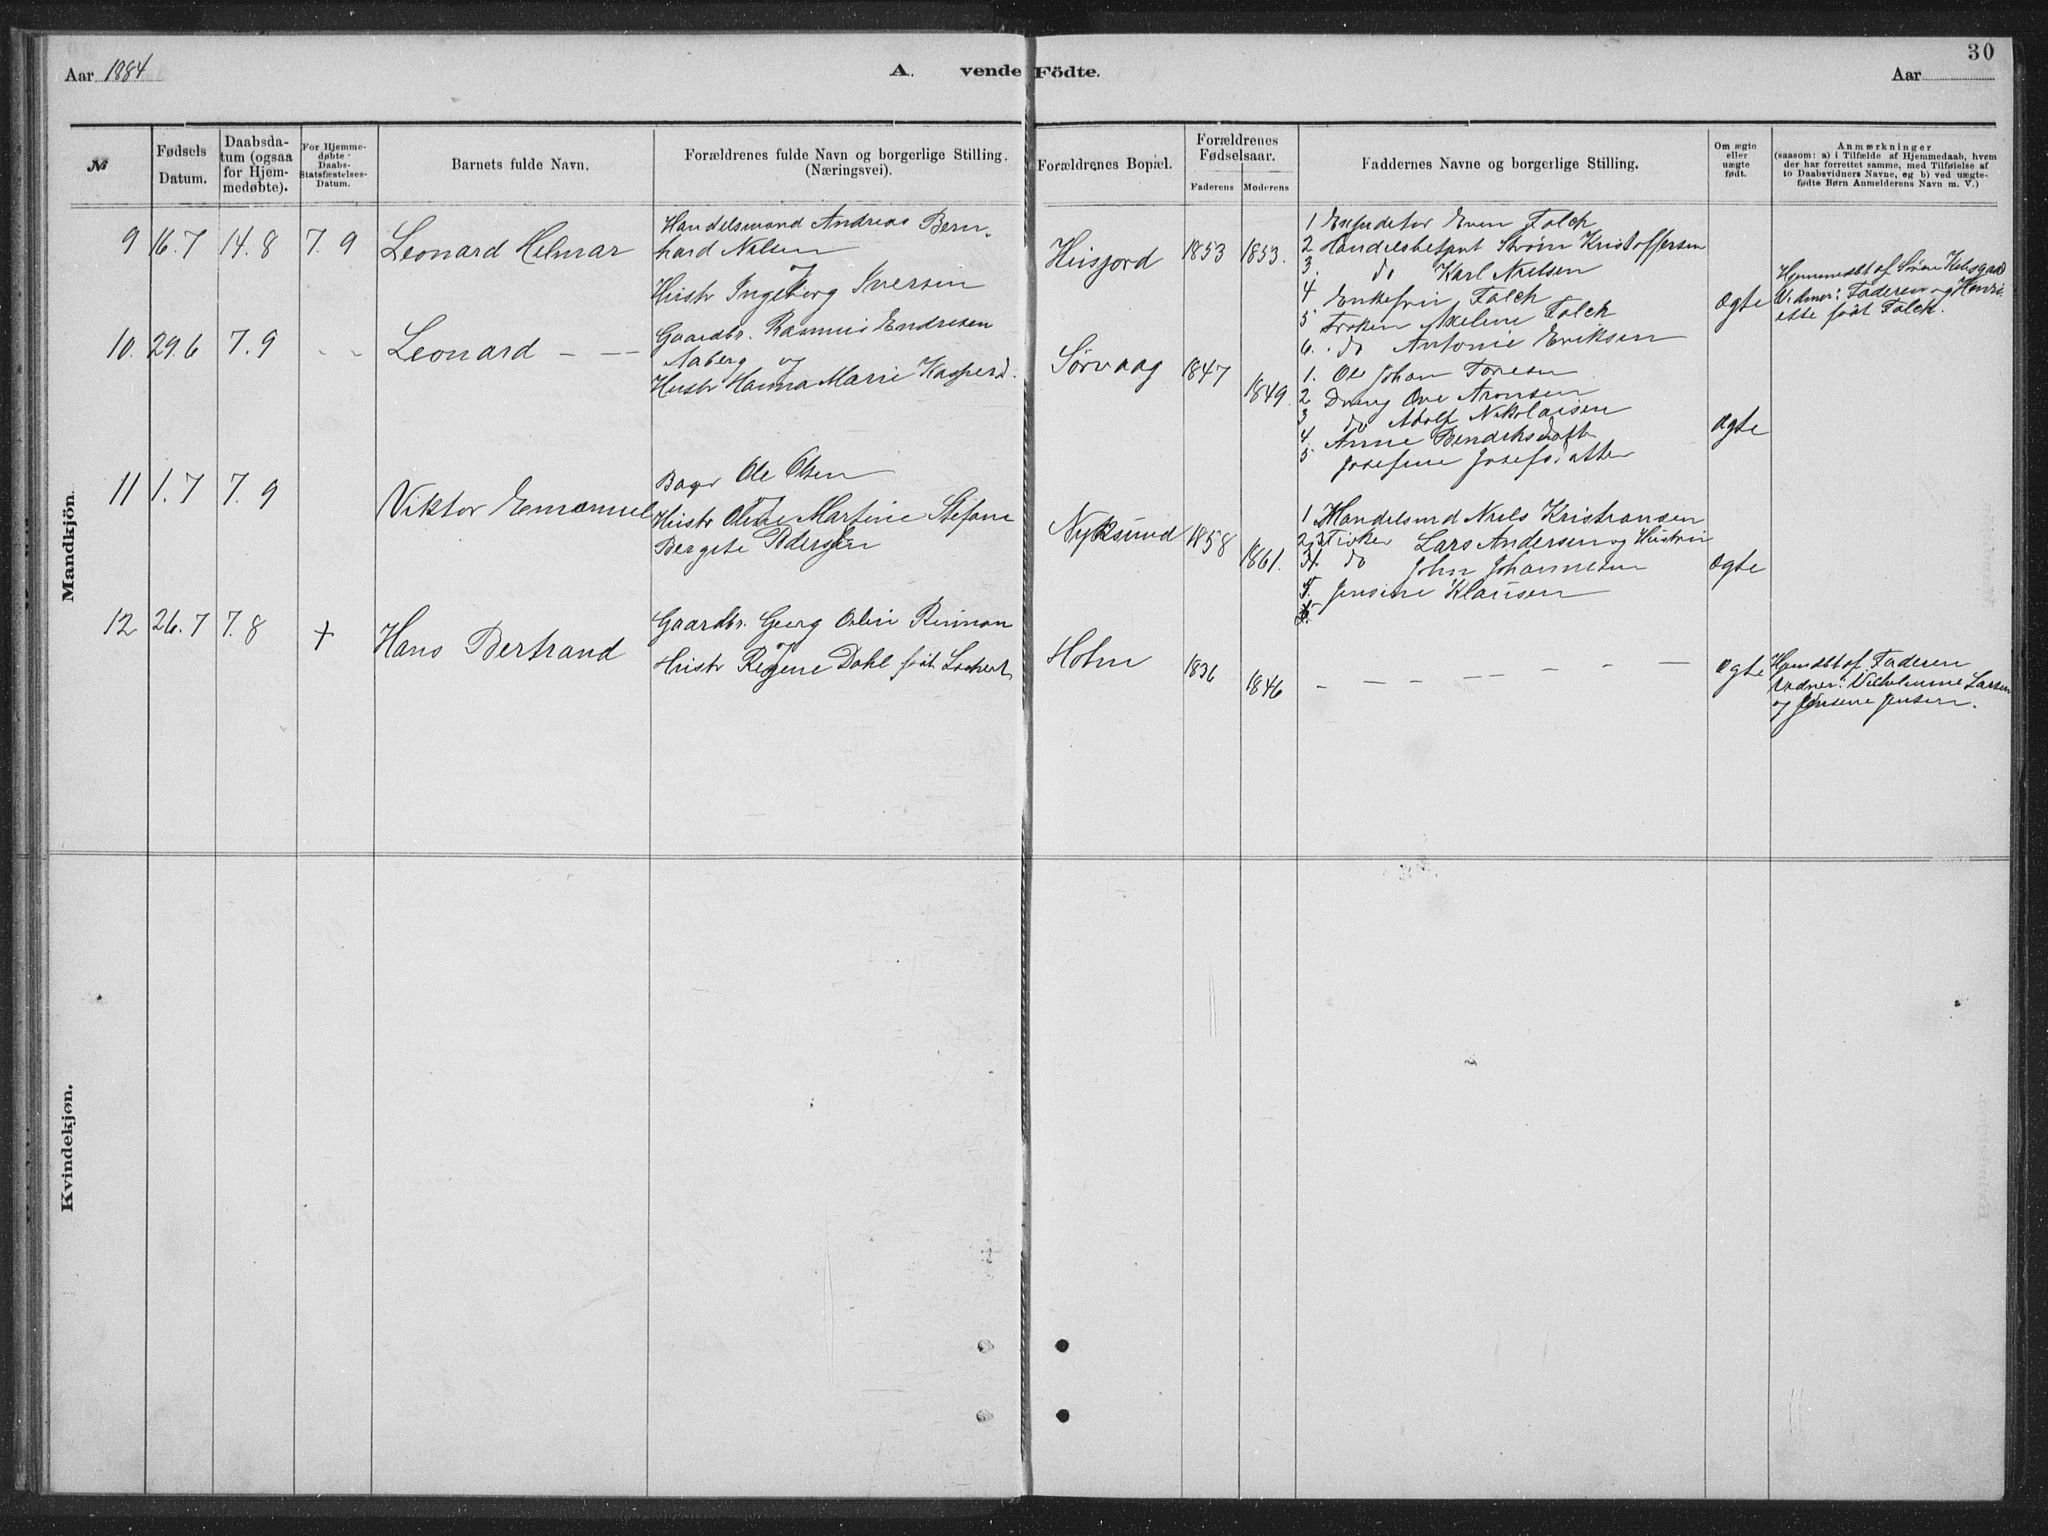 30
Aar 1884
A. vende Födte.
Aar
№
Fødsels Datum.
Daabsdatum (ogsaa for Hjemmedøbte).
For Hjemmedøbte Daabs-Statsfæstelses-Datum.
Barnets fulde Navn.
Forældrenes fulde Navn og borgerlige Stilling. (Næringsvei).
Forældrenes Bopæl.
Forældrenes Fødselsaar.
Faderens
Moderens
Faddernes Navne og borgerlige Stilling.
Om ægte eller uægte født.
Anmærkninger
(saasom: a) i Tilfælde af Hjemmedaab, hvem
der har forrettet samme, med Tilføielse af
to Daabsvidners Navne, og b) ved uægte-
fødte Børn Anmelderens Navn m. V.)
Mandkjön.
9 16.7 14.8 7.9 Leonard Helmar
Handelsmand Andreas Bern-
hard Nilsen
og
Hustr Ingeborg Iversen
Husfjord 1853 1853.
1 Expeditor Even Falch
2 Handelsbetjent Strøm Kristoffersen
3. do Karl Nielsen
4 Enkefru Falch
5 Frøken Axeline Falch
6. do Antonie Eriksen
Ægte
Hjemmedbt af Sine
Vidner: Faderen og Henri-
ette født Falch.
10. 29.6 7.9 - - Leonard - -
Gaardbr. Rasmus Endresen
Aaberg og
Hustr Hanna Marie Kaspersd.
Sørvaag 1847 1849.
1. Ole Johan Toresen
2 Dreng Ove Aronsen
3 do Adolf Nikolaisen
4. Anne Bendiksdatt
5 Josefine Josefsdatter
Ægte
11 1.7 7.9 Viktor Emanuel
Bager Ole Olsen
og
Hustr Oline Martine Stefane
Bergete Pedersen
Nyksund 1858 1861.
1 Handelsmd Niels Kristiansen
2, 3 Fisker Lars Andersen og Hustru
4. do John Johannesen
5. Jensine Klausen
Ægte
12 26.7 7.8 + Hans Bertrand
Gaardbr. Georg Olin Rinnan
og
Hustr Regine Dahl født Lockert
Holm 1836 1846
- - - - - - - -
Ægte
Hjemdbt af Faderen
Vidner: Vilhelmine Larsen
og Jensine Jensen.
Kvindekjøn.